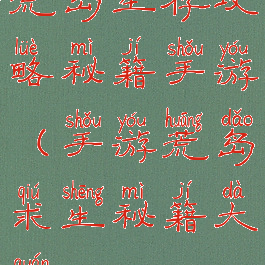 荒岛生存攻
lüè mì jí shǒu yóu
略秘籍手游
shǒu yóu huāng dǎo
(手游荒岛
qiú shēng mì jí dà
求生秘籍大
quán